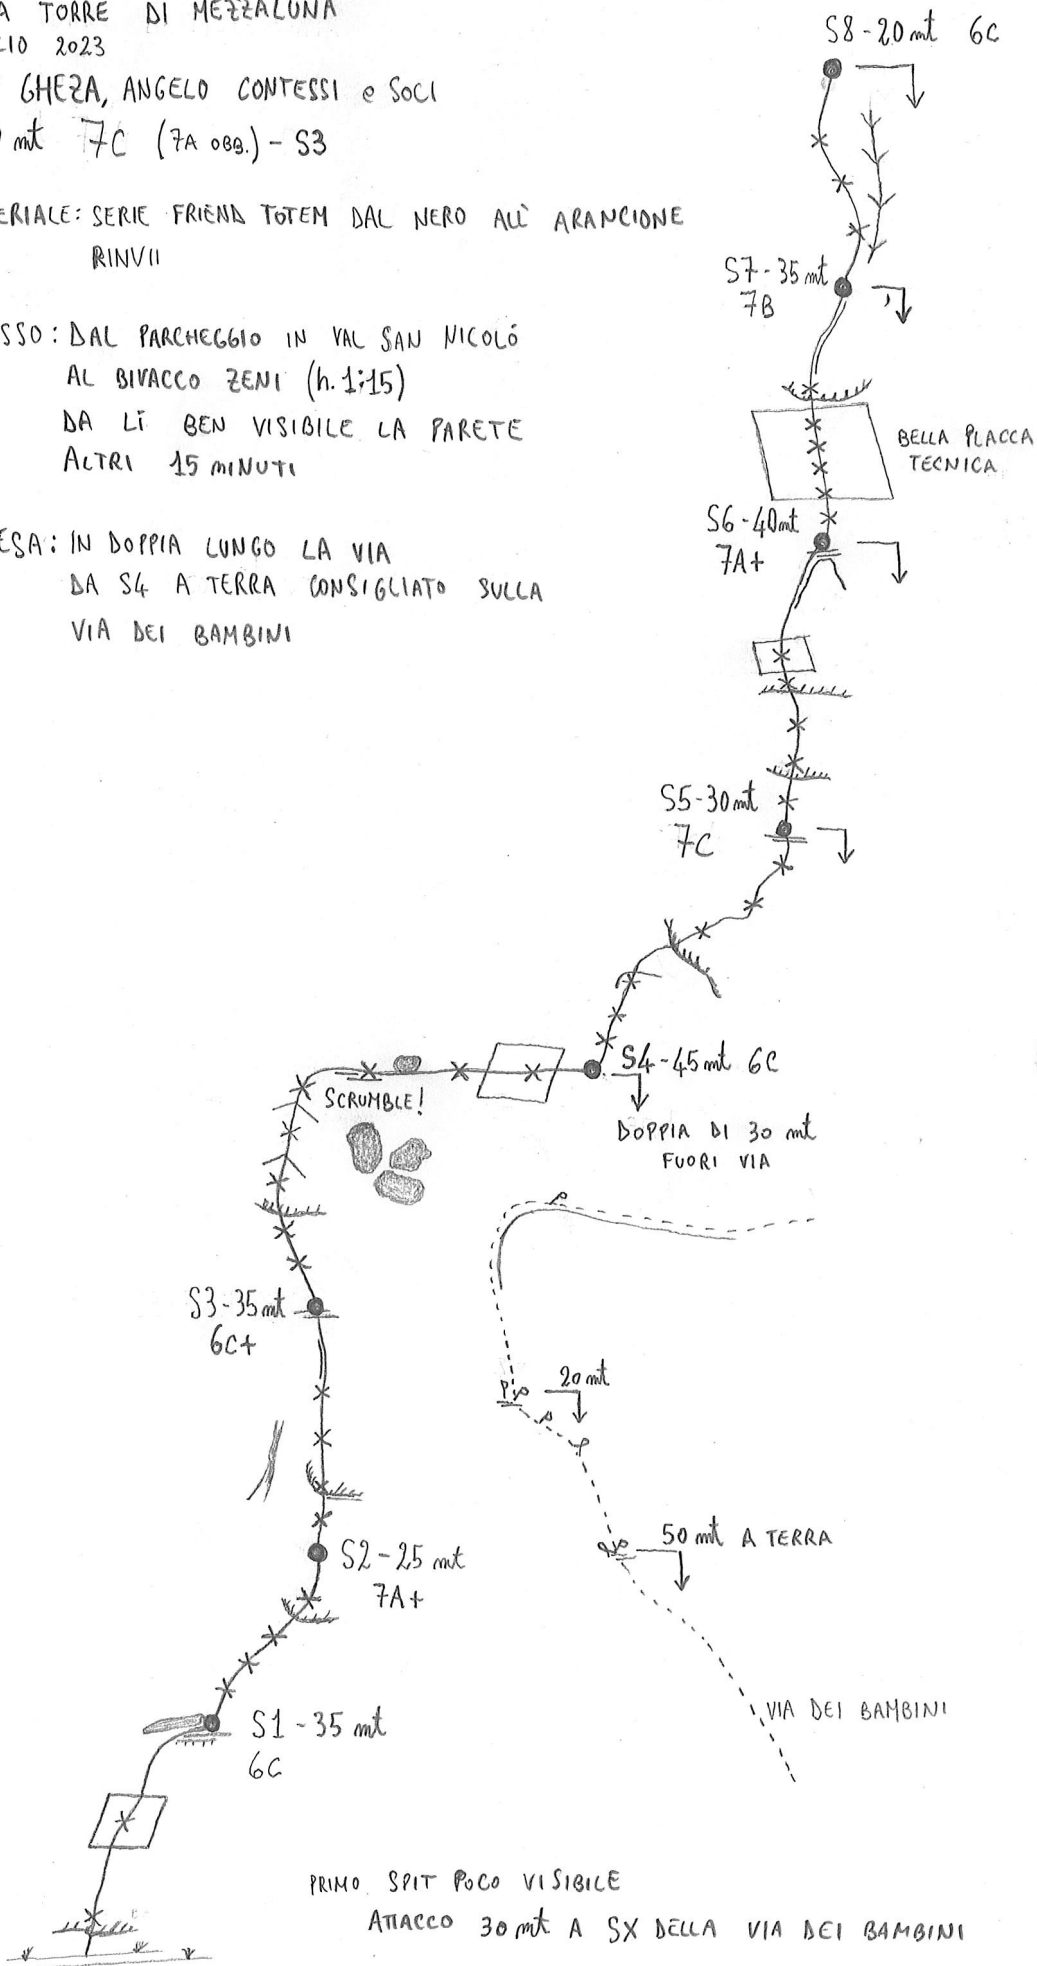 TORRE DI MEZZALUNA
2023
GHEZA, ANGELO CONTESSI e SOCI
mt 7C (7A OBB.) - S3
ERIALE: SERIE FRIEND TOTEM DAL NERO ALL' ARANCIONE
RINVII
SSO: DAL PARCHEGGIO IN VAL SAN NICOLÓ
AL BIVACCO ZENI (h. 1:15)
DA LÌ BEN VISIBILE LA PARETE
ALTRI 15 MINUTI
ESA: IN DOPPIA LUNGO LA VIA
DA S4 A TERRA CONSIGLIATO SULLA
VIA DEI BAMBINI
S8 - 20 mt 6C
S7 - 35 mt
7B
BELLA PLACCA
TECNICA
S6 - 40 mt
7A+
S5 - 30 mt
7C
S4 - 45 mt 6C
SCRUMBLE!
DOPPIA DI 30 mt
FUORI VIA
S3 - 35 mt
6C+
20 mt
50 mt A TERRA
S2 - 25 mt
7A+
VIA DEI BAMBINI
S1 - 35 mt
6C
PRIMO SPIT POCO VISIBILE
ATTACCO 30 mt A SX DELLA VIA DEI BAMBINI